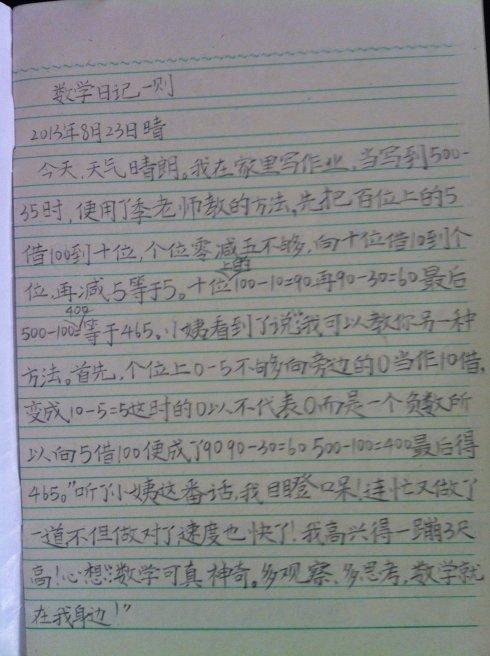 数学日记一则
2013年8月23日晴
今天,天气晴朗。我在家里写作业,当写到500-
35时,使用了季老师教的方法。先把百位上的5
借100到十位,个位零减五不够,向十位借10到个
位,再减5等于5。十位上的100-10=90再90-30=60最后
500-100=400等于465。小姨看到了说:"我可以教你另一种
方法。首先,个位上0-5不够向旁边的0当作10借,
变成10-5=5这时的0以不代表0而是一个负数所
以向5借100便成了90 90-30=60 500-100=400最后得
465。"听了小姨这番话,我目瞪口呆!连忙又做了
一道,不但做对了速度也快了!我高兴得一蹦3尺
高!心想:"数学可真神奇。多观察、多思考,数学就
在我身边!"